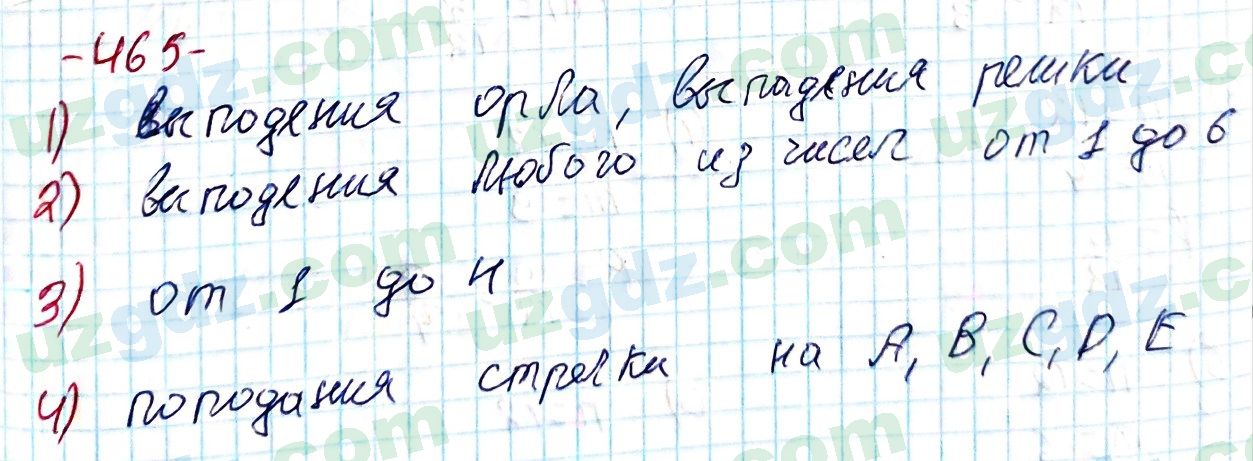 -465-
1) выподения орла, выподения решки
2) выподения любого из чисел от 1 до 6
3) от 1 до 4
4) пoподания стрелки на A, B, C, D, E
uzgdz.com